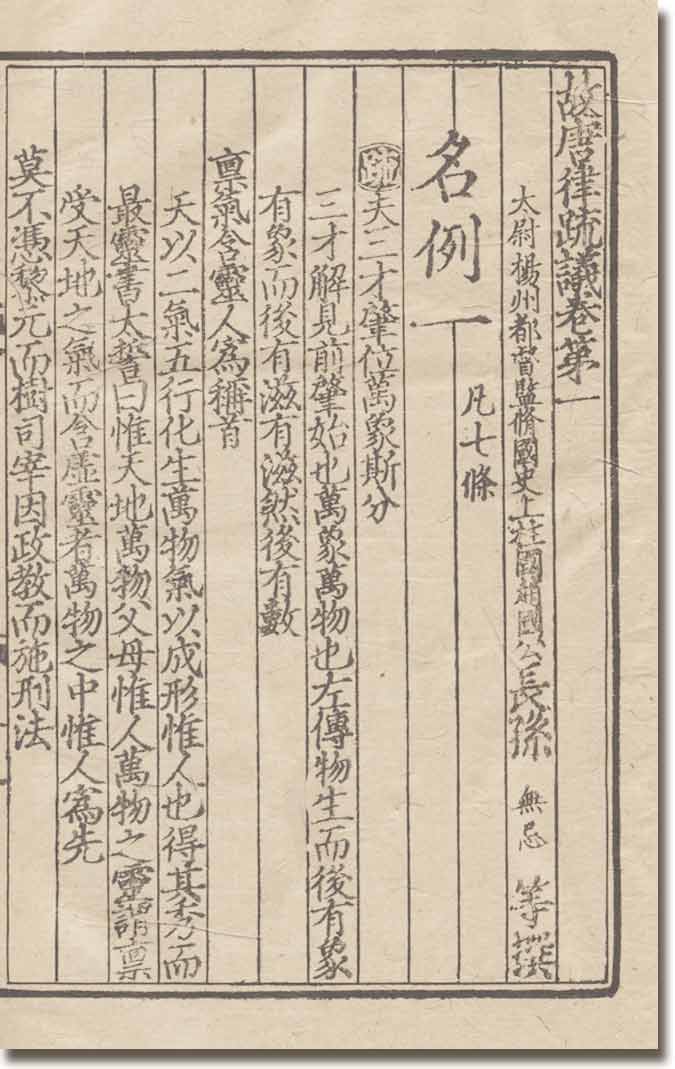 故唐律疏議卷第一
太尉揚州都督監脩國史上柱國趙國公長孫無忌等撰
名例一
凡七條
疏夫三才肇位萬象斯分
三才解見前肇始也萬象萬物也左傳物生而後有象
有象而後有滋有滋然後有數
禀氣含靈人爲稱首
天以二氣五行化生萬物氣以成形惟人也得其秀而
最靈書太誓曰惟天地萬物父母惟人萬物之靈謂禀
受天地之氣而含虛靈者萬物之中惟人爲先
莫不憑黎元而樹司宰因政教而施刑法